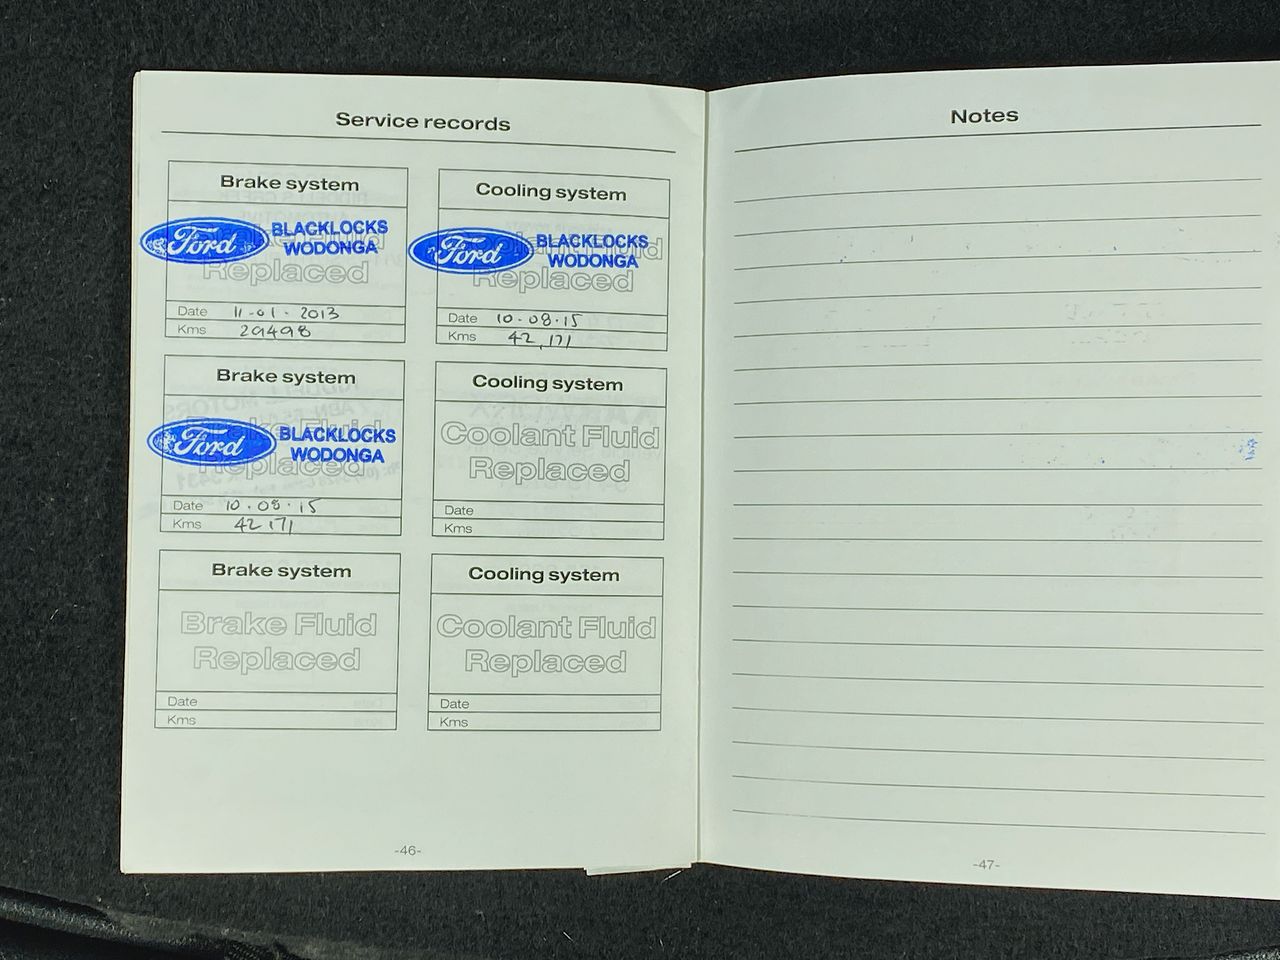 Service records
Brake system
Ford BLACKLOCKS
WODONGA
Replaced
Date 11-01-2013
Kms 29498
Cooling system
Ford BLACKLOCKS
WODONGA
Replaced
Date 10-08-15
Kms 42,171
Brake system
Ford BLACKLOCKS
WODONGA
Replaced
Date 10.08.15
Kms 42171
Cooling system
Coolant Fluid
Replaced
Date
Kms
Brake system
Brake Fluid
Replaced
Date
Kms
Cooling system
Coolant Fluid
Replaced
Date
Kms
-46-
Notes
-47-